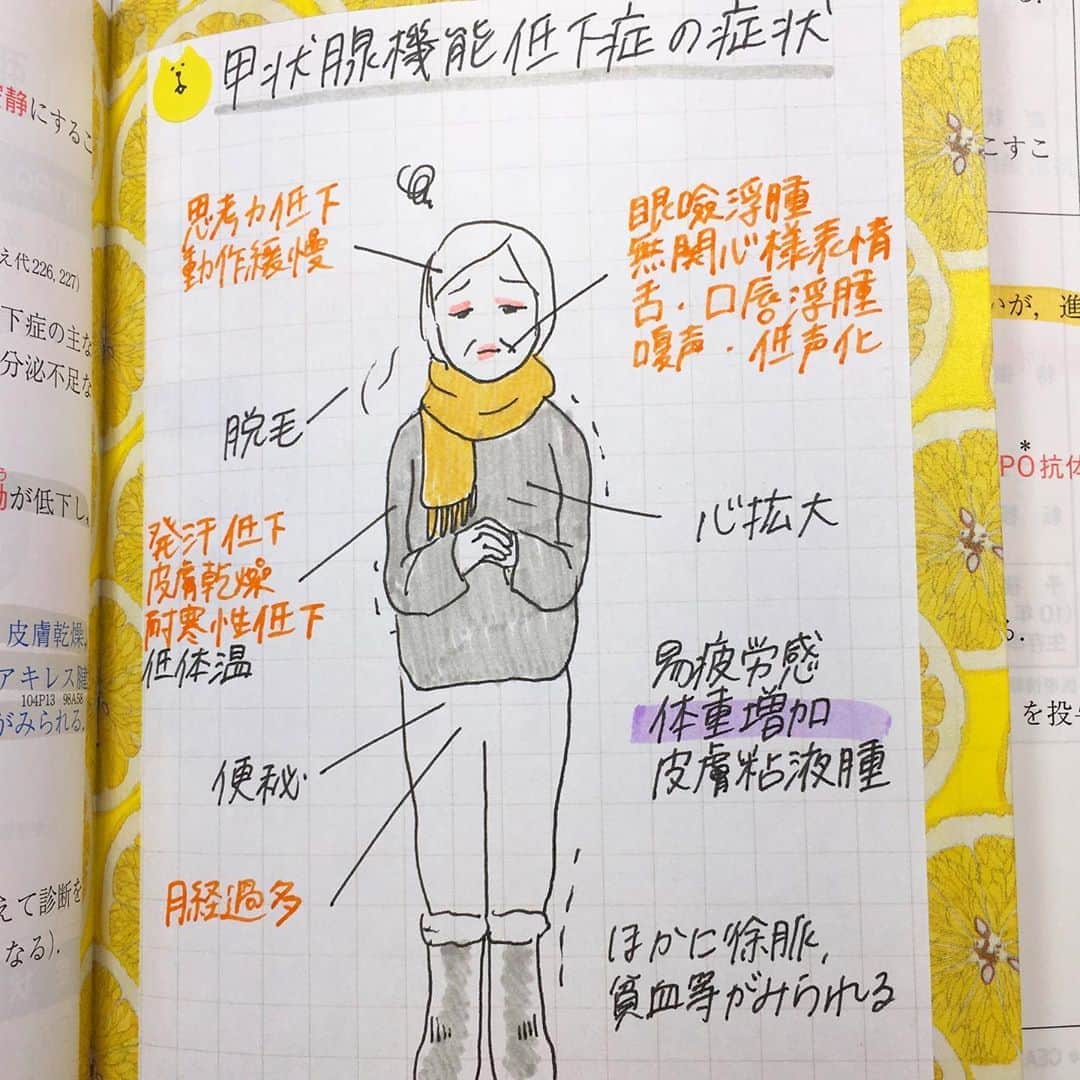 甲状腺機能低下症の症状
思考力低下
動作緩慢
眼瞼浮腫
無関心様表情
舌・口唇浮腫
嗄声・低声化
脱毛
心拡大
発汗低下
皮膚乾燥
耐寒性低下
低体温
易疲労感
体重増加
皮膚粘液腫
便秘
月経過多
ほかに徐脈,
貧血等がみられる
静にするこ
え代226, 227)
下症の主な
分泌不足な
が低下し
皮膚乾燥,
アキレス腱
104P13 98A58
がみられる.
えて診断を
なる).
こすこ
いが, 進
*
PO抗体
る.
を投与